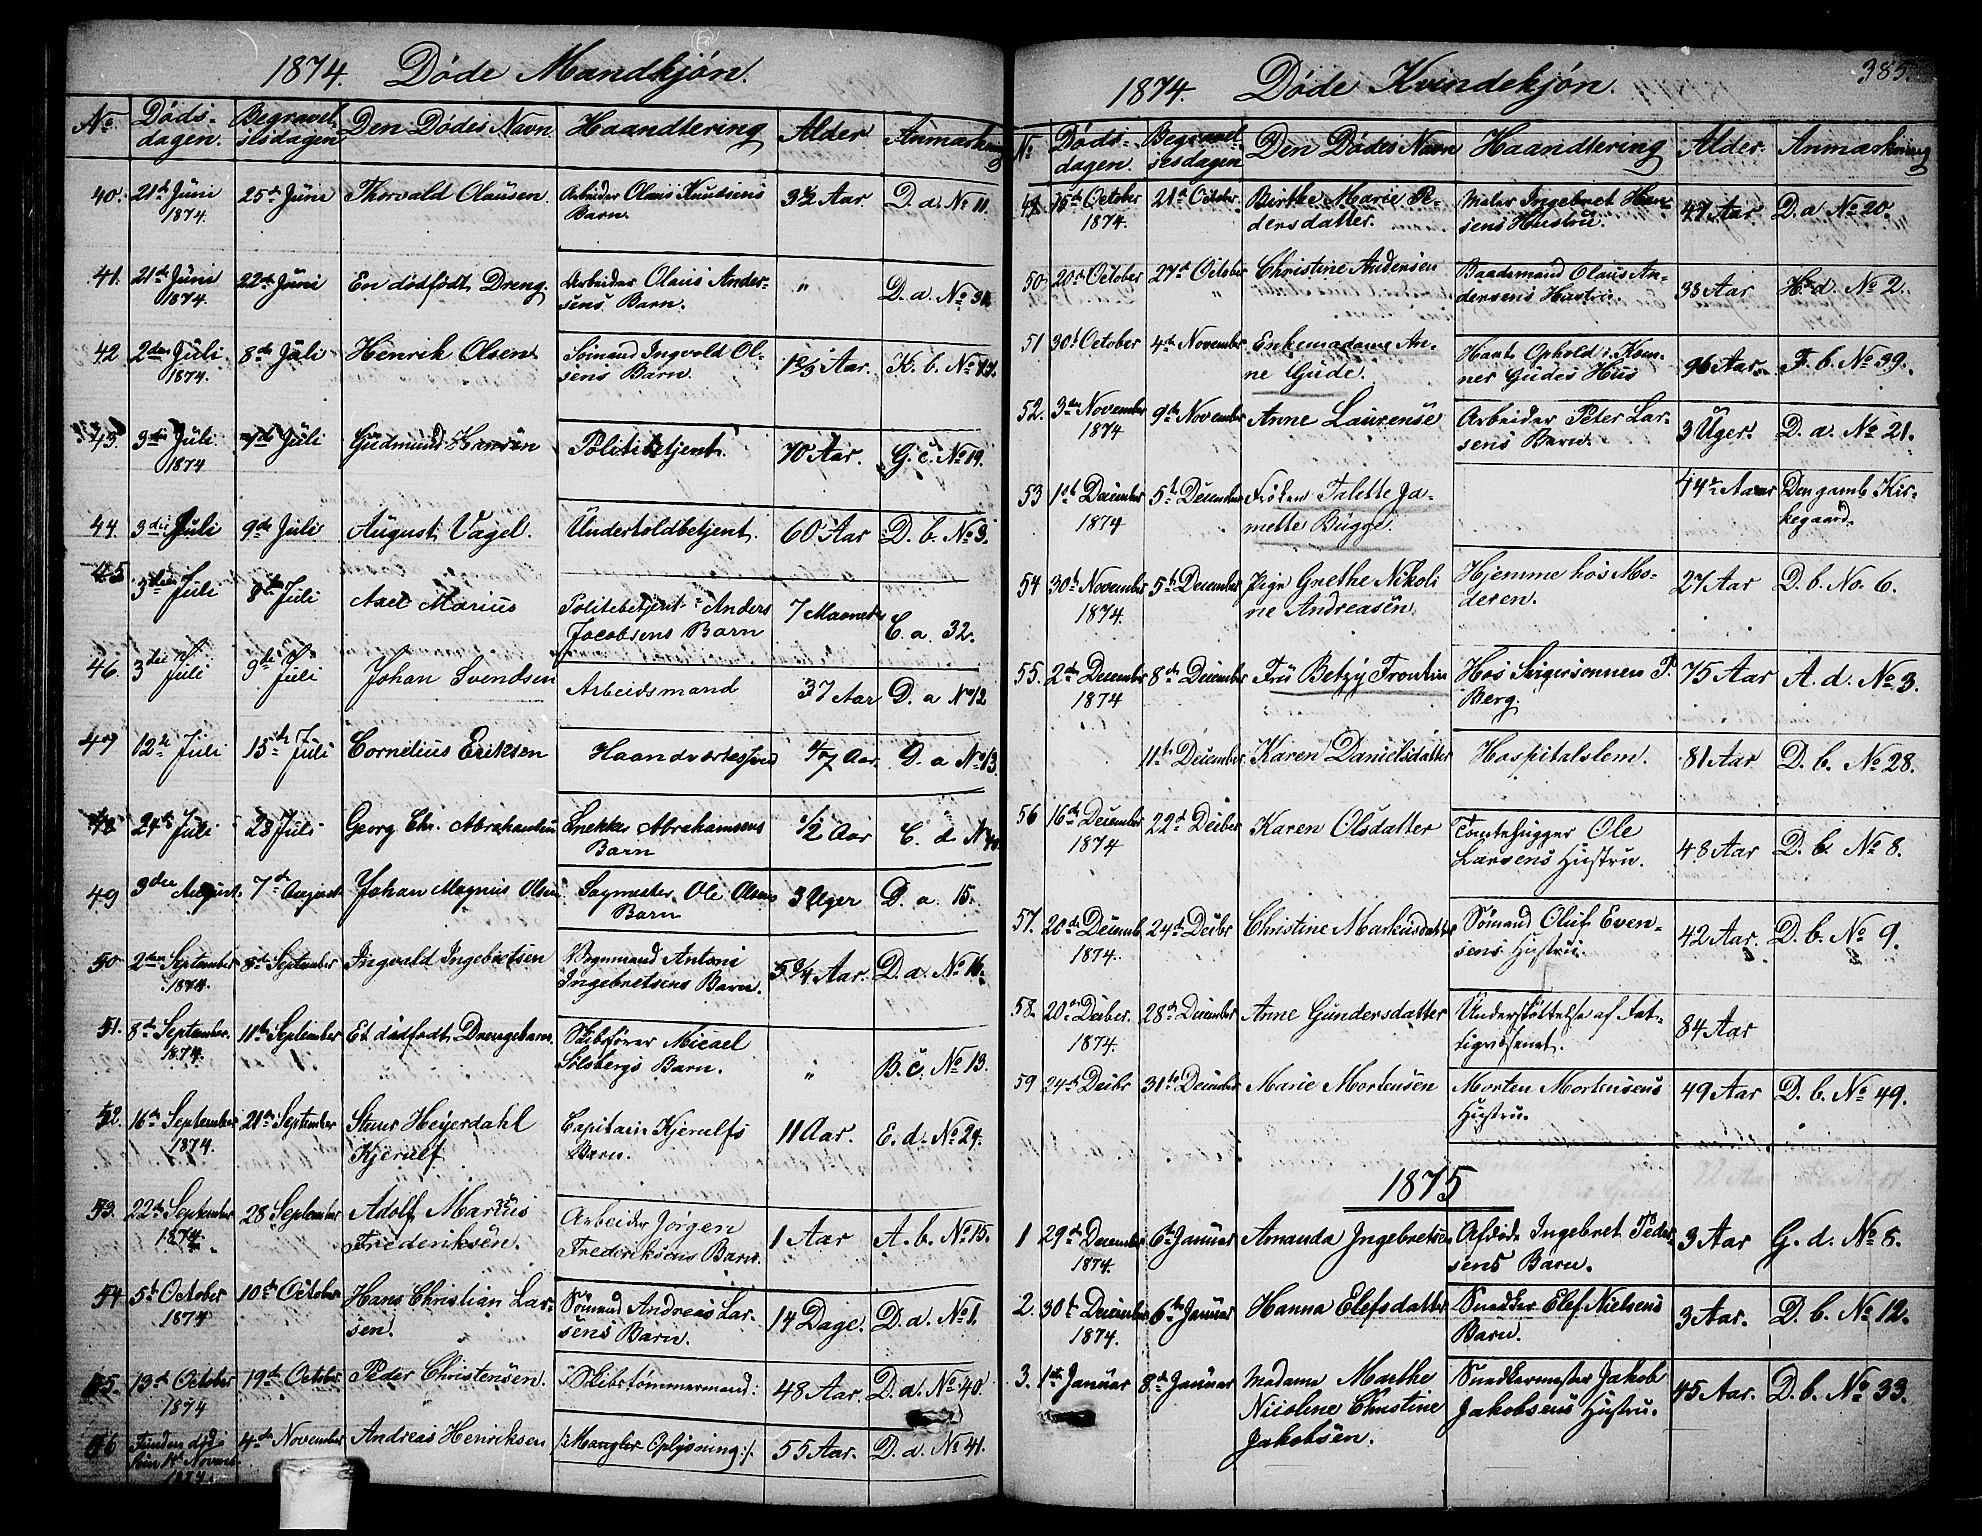 1874. Döde Mandkjön.
No Döds- Begravel- Den Dödes Navn Haandtering Alder Anmærkning
dagen. sesdagen
40. 21de Juni 25de Juni Thorvald Olausen. Arbeider Olaus Knudsens 3½ Aar D. a. No 11.
1874. Barn.
41. 21de Juni 22de Juni En dödfödt Dreng. Arbeider Olaus Ander- " D. a. No 31.
1874. sens Barn.
42 2den Juli 8de Juli Henrik Olsen Sömand Ingvold Ol- 1 2/3 Aar. K. b. No 17.
1874. sens Barn.
43. 3die Juli 7de Juli Gudmund Hansen Politibetjent. 70 Aar. G. c. No 19.
1874
44. 3die Juli 9de Juli August Vagel. Undertoldbetjent. 60 Aar D. b. No 3.
45 3die Juli 8de Juli Axel Marius Politibetjent Anders 7 Maaneder C. a. 32.
Jacobsens Barn
46. 3die Juli 9de Juli Johan Svendsen Arbeidsmand 37 Aar D. a No 12
47 12te Juli 15de Juli Cornelius Eriksen Haandverkssvend 47 Aar. D. a No 13.
48 24de Juli 28 Juli Georg Chr. Abrahamsen Snekker Abrahamsens 1/2 Aar C. d No 40.
Barn
49 3die August. 7de August Johan Magnus Olsen Sagmester Ole Olsens 3 Uger D. a. 15.
Barn
50 2den September 8de September Ingvald Ingebretsen Vognmand Antoni 5 3/4 Aar. D. a. No 16.
1874. Ingebretsens Barn.
51. 8de September. 11te September Et dödfödt Drengebarn. Skibsförer Micael " B. c. No 13.
1874. Solbergs Barn.
52. 16de September 21de September Heyerdahl Capitain Kjerulfs 11 Aar. E. d. No 29.
1874. Kjerulf Barn.
53. 22de September 28 September Adolf Marius Arbeider Jörgen 1 Aar A. b. No 15.
1874. Frederiksen. Frederiksens Barn.
54 5te October 10de October Hans Christian Lar- Sömand Andreas Lar- 14 Dage. D. a. No 1.
1874 sen. sens Barn.
55. 13de October 19de October Peder Christensen. Skibstömmermand: 48 Aar D. a. No 40.
1874
56 Funden död 4de November Andreas Henriksen /: Mangler Oplysning :/. 55 Aar. D. a. No 41.
den 1ste Novemb.
1874.
1874. Döde Kvindekjön. 385.
No Döds- Begravel- Den Dödes Navn Haandtering Alder. Anmærkning
dagen. sesdagen
49. 15de October 21de October. Birthe Marie Pe- Maler Ingebret Han- 47 Aar D. a No 20.
1874. dersdatter. sens Hustru.
50 20de October 27de October Christine Andersen Baadsmand Olaus An- 33 Aar H. d. No 2.
" dersens Hustru.
51 30te October 4de November Enkemadame An- Havt Ophold i Kom- 96 Aar. F. b. No 39.
ne Gude. ner Gudes Hus
52. 3die November 9de November Anne Laurense Arbeider Peter Lar- 3 Uger. D. a. No 21.
1874 sens Barn.
53 1ste December 5te December Fröken Talette Ja- 44 Aar Den gamle Kir-
1874 mette Bügge. kegaard.
54 30te November 5te December Pige Grethe Nikoli Hjemme hos Mo- 27 Aar D. b. No. 6.
1874. ne Andreasen. deren.
55. 2den December 8de December Frü Betzy Frontin Hos Svigersønnen T. 75 Aar A. d. No 3.
1874 Berg.
11te December Karen Danielsdatter Hospitalslem. 81 Aar D. b. No 28.
56 16de December 22de Dciber Karen Olsdatter Tomtehugger Ole 48 Aar D. b. No 8.
1874 Larsens Hustru.
57. 20de Decemb. 24de Decbr Christine Markusdatter Sömand Oluf Even- 42 Aar. D. b. No 9.
1874. sens Hustru.
58. 20de Deciber. 28de December Anne Gundersdatter Understöttelse af Fat- 84 Aar
1874. tigvæsenet.
59 24de Decbr 31te December Marie Mortensen Morten Mortensens 49 Aar D. b. No 49.
Hustru.
1875
1 29de December 6te Januar Amanda Ingebretsen Afdöde Ingebret Peder- 3 Aar G. d. No 8.
1874. sens Barn.
2. 30te December 6te Januar Hanna Elefsdatter Snedker Elef Nielsens 3 Aar. D. b. No 12.
1874. Barn.
3. 1ste Januar 8de Januar Madame Marthe Snedkermester Jakob 45 Aar. D. b. No 33.
Nicoline Christine Jakobsens Hustru.
Jakobsen.